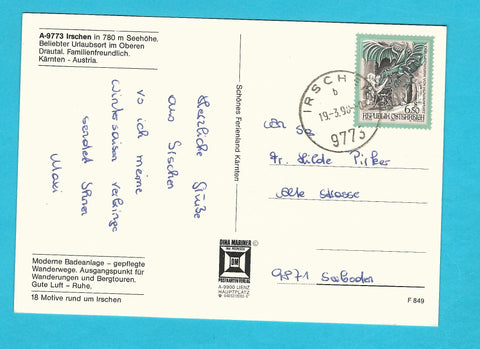 A-9773 Irschen in 780 m Seehöhe.
Beliebter Urlaubsort im Oberen
Drautal. Familienfreundlich.
Kärnten - Austria.
Herzliche Grüße
aus Irschen
wo ich meine
Wintersaison verbringe
sendet Ihnen
Moderne Badeanlage – gepflegte
Wanderwege. Ausgangspunkt für
Wanderungen und Bergtouren.
Gute Luft – Ruhe.
18 Motive rund um Irschen
Schönes Ferienland Kärnten
DINA MARINER
DM
POSTKARTENVERLAG
A-9900 LIENZ
HAUPTPLATZ
IRSCHEN
b
9773
6.50
REPUBLIK ÖSTERREICH
Hilde Pirker
Alte Strasse
9871 Seeboden
F 849